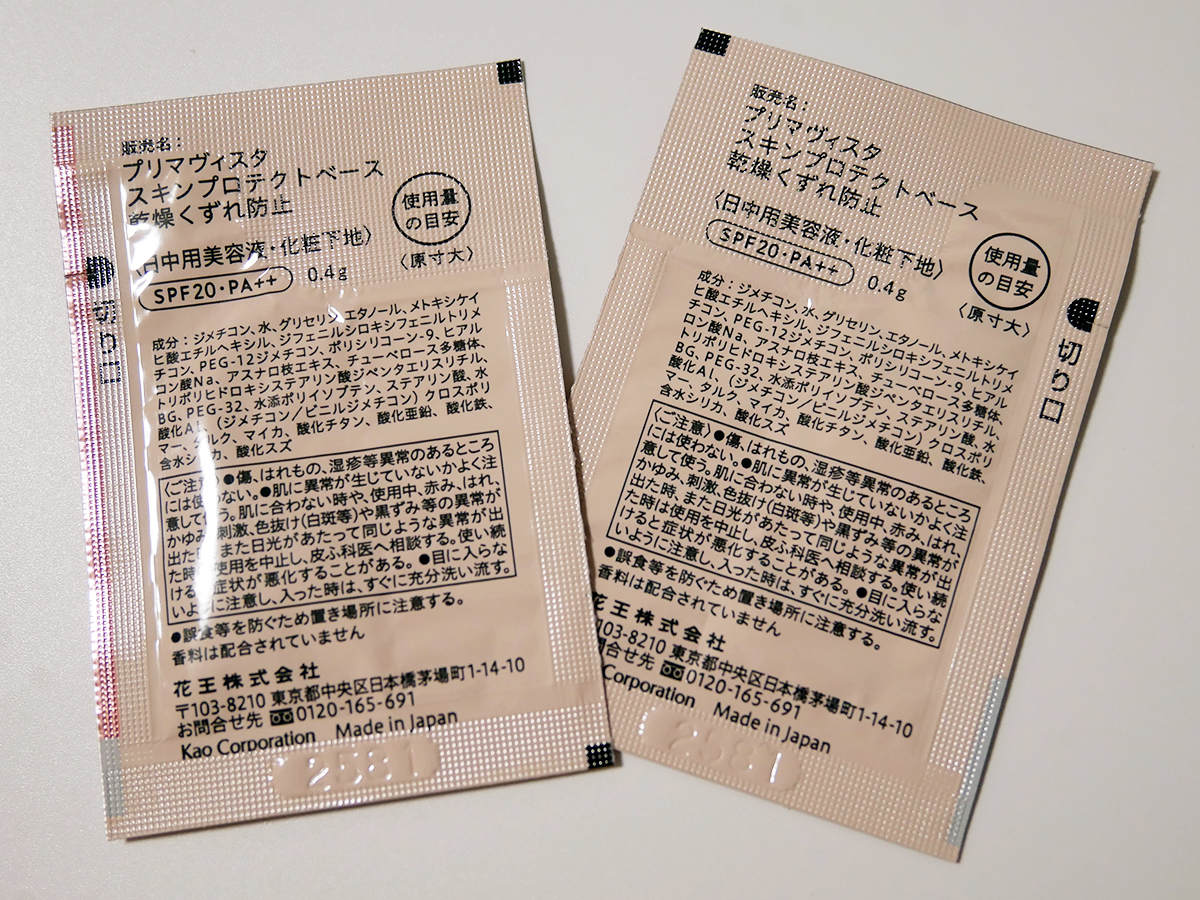 販売名：
プリマヴィスタ
スキンプロテクトベース
乾燥くずれ防止
〈日中用美容液・化粧下地〉
SPF20・PA++
0.4g
使用量
の目安
〈原寸大〉
切り口
成分：ジメチコン、水、グリセリン、エタノール、メトキシケイ
ヒ酸エチルヘキシル、ジフェニルシロキシフェニルトリメ
チコン、PEG-12ジメチコン、ポリシリコーン-9、ヒアル
ロン酸Na、アスナロ枝エキス、チューベロース多糖体、
トリポリヒドロキシステアリン酸ジペンタエリスリチル、
BG、PEG-32、水添ポリイソブテン、ステアリン酸、水
酸化Al、（ジメチコン/ビニルジメチコン）クロスポリ
マー、タルク、マイカ、酸化チタン、酸化亜鉛、酸化鉄、
含水シリカ、酸化スズ
〈ご注意〉●傷、はれもの、湿疹等異常のあるところ
には使わない。●肌に異常が生じていないかよく注
意して使う。肌に合わない時や、使用中、赤み、はれ、
かゆみ、刺激、色抜け(白斑等)や黒ずみ等の異常が
出た時、また日光があたって同じような異常が出
た時は使用を中止し、皮ふ科医へ相談する。使い続
けると症状が悪化することがある。●目に入らな
いように注意し、入った時は、すぐに充分洗い流す。
●誤食等を防ぐため置き場所に注意する。
香料は配合されていません
花王株式会社
〒103-8210 東京都中央区日本橋茅場町1-14-10
お問合せ先 0120-165-691
Kao Corporation Made in Japan
2581
販売名：
プリマヴィスタ
スキンプロテクトベース
乾燥くずれ防止
〈日中用美容液・化粧下地〉
SPF20・PA++
0.4g
使用量
の目安
〈原寸大〉
切り口
成分：ジメチコン、水、グリセリン、エタノール、メトキシケイ
ヒ酸エチルヘキシル、ジフェニルシロキシフェニルトリメ
チコン、PEG-12ジメチコン、ポリシリコーン-9、ヒアル
ロン酸Na、アスナロ枝エキス、チューベロース多糖体、
トリポリヒドロキシステアリン酸ジペンタエリスリチル、
BG、PEG-32、水添ポリイソブテン、ステアリン酸、水
酸化Al、（ジメチコン/ビニルジメチコン）クロスポリ
マー、タルク、マイカ、酸化チタン、酸化亜鉛、酸化鉄、
含水シリカ、酸化スズ
〈ご注意〉●傷、はれもの、湿疹等異常のあるところ
には使わない。●肌に異常が生じていないかよく注
意して使う。肌に合わない時や、使用中、赤み、はれ、
かゆみ、刺激、色抜け(白斑等)や黒ずみ等の異常が
出た時、また日光があたって同じような異常が出
た時は使用を中止し、皮ふ科医へ相談する。使い続
けると症状が悪化することがある。●目に入らな
いように注意し、入った時は、すぐに充分洗い流す。
●誤食等を防ぐため置き場所に注意する。
香料は配合されていません
花王株式会社
103-8210 東京都中央区日本橋茅場町1-14-10
問合せ先 0120-165-691
Corporation Made in Japan
2581